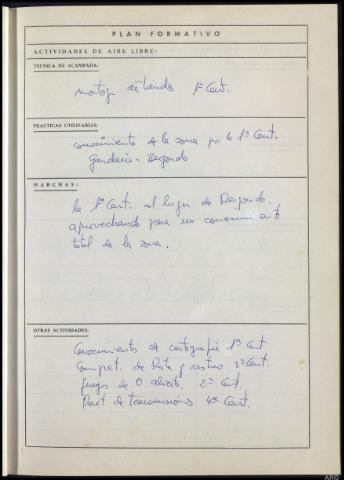 PLAN FORMATIVO
ACTIVIDADES DE AIRE LIBRE:
TECNICA DE ACAMPADA:
montaj de tiendas 1ª Cent.
PRACTICAS UTILITARIAS:
conocimiento de la zona por la 1ª Cent.
Gandario - Bergondo
MARCHAS:
la 1ª Cent. al lugar de Bergondo.
aprovechando para un conocimiento
total de la zona.
OTRAS ACTIVIDADES:
Conocimientos de cartografía 1ª Cent
Compet. de pista y rastreo 3ª Cent.
fuegos de O. 2ª Cent.
Pract de transmisiones 4ª Cent.
ARG